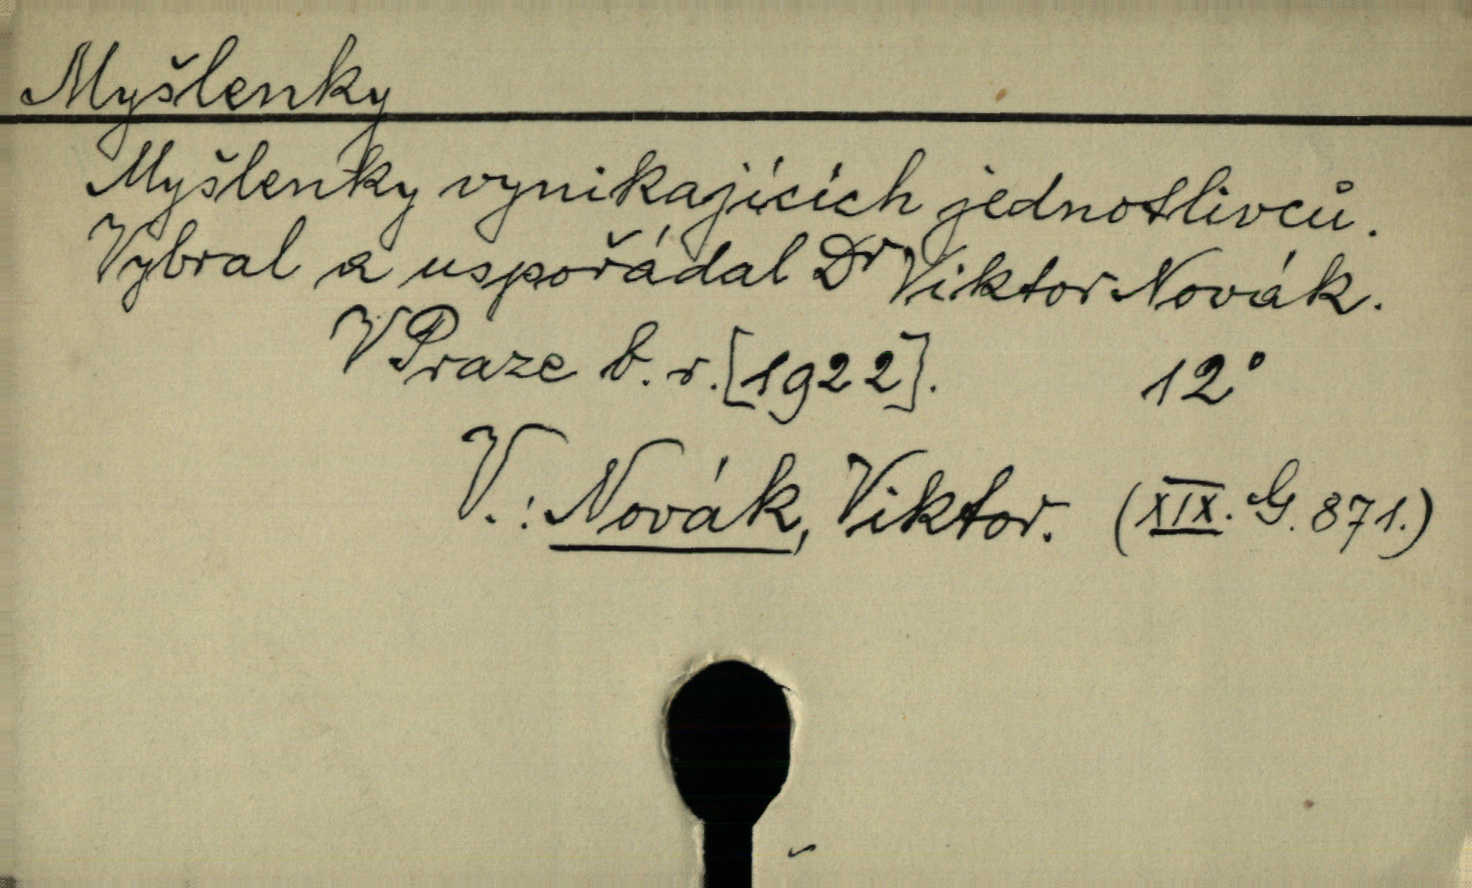 Myšlenky
Myšlenky vynikajících jednotlivců.
Vybral a uspořádal Dr Viktor Novák.
V Praze b. r. [1922]. 12°
V.: Novák, Viktor. (XIX. G. 871.)